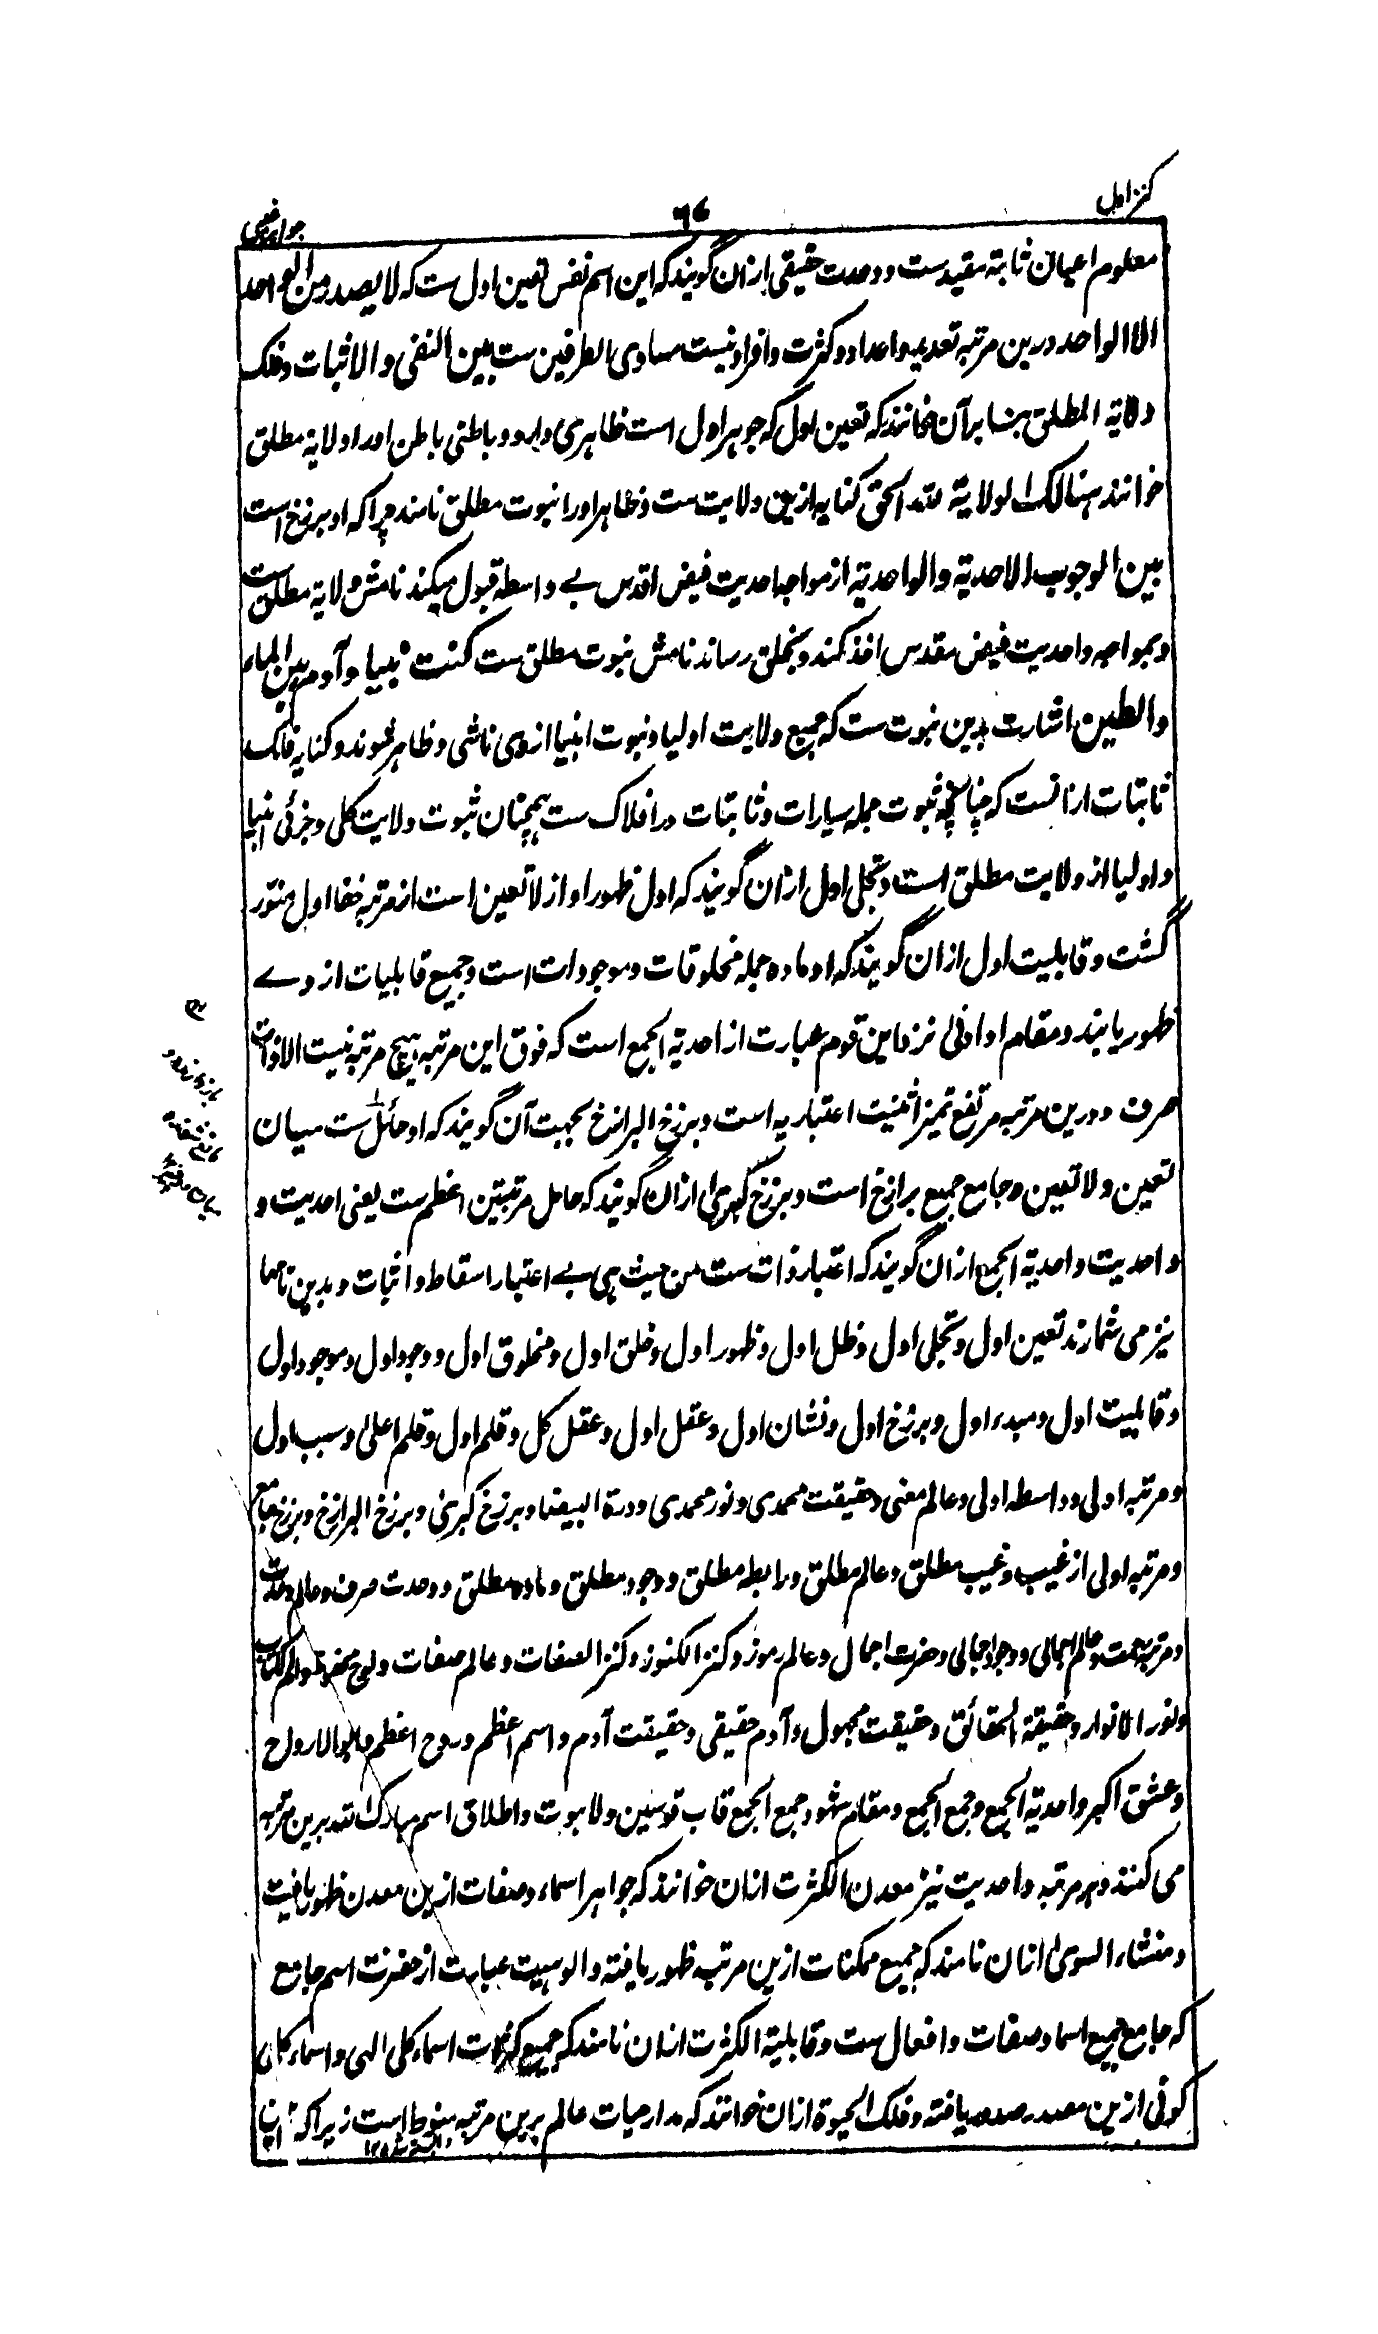 کنز اول
۶۷
جواہر غیبی
معلوم اعیان ثابتہ مقیدست و وحدت حقیقی ازان گویند کہ این اسم نفس تعین اول ست کہ لا یصدر من الواحد
الا الواحد درین مرتبہ تعدید و اعداد و کثرت و افراد نیست مساوی الطرفین ست بین النفی والاثبات و فلک
ولایۃ المطلق بنا بر آن خوانند کہ تعین اول کہ جوہر اول است ظاہری دارد و باطنی باطن او را ولایۃ مطلق
خوانند ہنالک الولایۃ للہ الحق کنایہ ازین ولایت ست و ظاہر او را نبوت مطلق نامند چرا کہ او برزخ است
بین الوجوب الاحدیۃ والواحدیۃ از مواجہ احدیت فیض اقدس بے واسطہ قبول میکند نامش ولایۃ مطلق ست
و بمواجہ واحدیت فیض مقدس اخذ کند و بخلق رساند نامش نبوت مطلق ست کنت نبیا و آدم بین الماء
والطین اشارت بدین نبوت ست کہ جمیع ولایت اولیا و نبوت انبیا ازوی ناشی و ظاہر شوند و کنایہ فلک
ثابتات ازانست کہ چنانچہ ثبوت جملہ سیارات و ثابتات در افلاک ست ہمچنان ثبوت ولایت کلی و جزئی انبیا
و اولیا از ولایت مطلق است و تجلی اول ازان گویند کہ اول ظہور او از لا تعین است از مرتبہ خفا اول منور
گشت و قابلیت اول ازان گویند کہ او مادہ جملہ مخلوقات و موجودات است و جمیع قابلیات از وے
ظہور یابند و مقام او ادنی نزد این قوم عبارت از احدیۃ الجمع است کہ فوق این مرتبہ ہیچ مرتبہ نیست الا ذات
صرف و درین مرتبہ مرتفع تمیز اثنیت اعتباریہ است و برزخ البرازخ بجہت آن گویند کہ او حائل ست میان
تعین و لا تعین و جامع جمیع برازخ است و برزخ کبری ازان گویند کہ حامل مرتبتین اعظم ست یعنی احدیت و
واحدیت و احدیۃ الجمع ازان گویند کہ اعتبار ذات ست من حیث ہی بے اعتبار اسقاط و اثبات و بدین نامہا
نیز می شمارند تعین اول و تجلی اول و ظل اول و ظہور اول و خلق اول و مخلوق اول و وجود اول و موجود اول
و قابلیت اول و مبدء اول و برزخ اول و نشان اول و عقل اول و عقل کل و قلم اول و قلم اعلی و سبب اول
و مرتبہ اولی و واسطہ اولی و عالم معنی و حقیقت محمدی و نور محمدی و درۃ البیضا و برزخ کبری و برزخ البرازخ و برزخ جامع
و مرتبہ اولی از غیب و غیب مطلق و عالم مطلق و رابطہ مطلق و وجود مطلق و مادہ مطلق و وحدت صرف و عالم وحدت
و مرتبہ و عالم اجمالی و وجود اجمالی و حضرت اجمال و عالم رموز و کنز الکنوز و کنز الصفات و عالم صفات و لوح محفوظ و ام الکتاب
و نور الانوار و حقیقۃ الحقائق و حقیقت مجہول و آدم حقیقی و حقیقت آدم و اسم اعظم و روح اعظم و ابو الارواح
و عشق اکبر و احدیۃ الجمع و جمع الجمع و مقام شہود جمع الجمع قاب قوسین و لاہوت و اطلاق اسم مبارک اللہ برین مرتبہ
می کنند و بر مرتبہ واحدیت نیز معدن الکثرت ازان خوانند کہ جواہر اسماء و صفات ازین معدن ظہور یافت
و منشاء السوی ازان نامند کہ جمیع ممکنات ازین مرتبہ ظہور یافتہ و الوہیت عبارت از حضرت اسم جامع
کہ جامع جمیع اسما و صفات و افعال ست و قابلیۃ الکثرت ازان نامند کہ جمیع کثرات اسماء کلی الہی و اسماء کلی
کونی ازین مصدر صدور یافتہ و فلک الحیوۃ ازان خوانند کہ مدار حیات عالم برین مرتبہ منوط است زیرا کہ